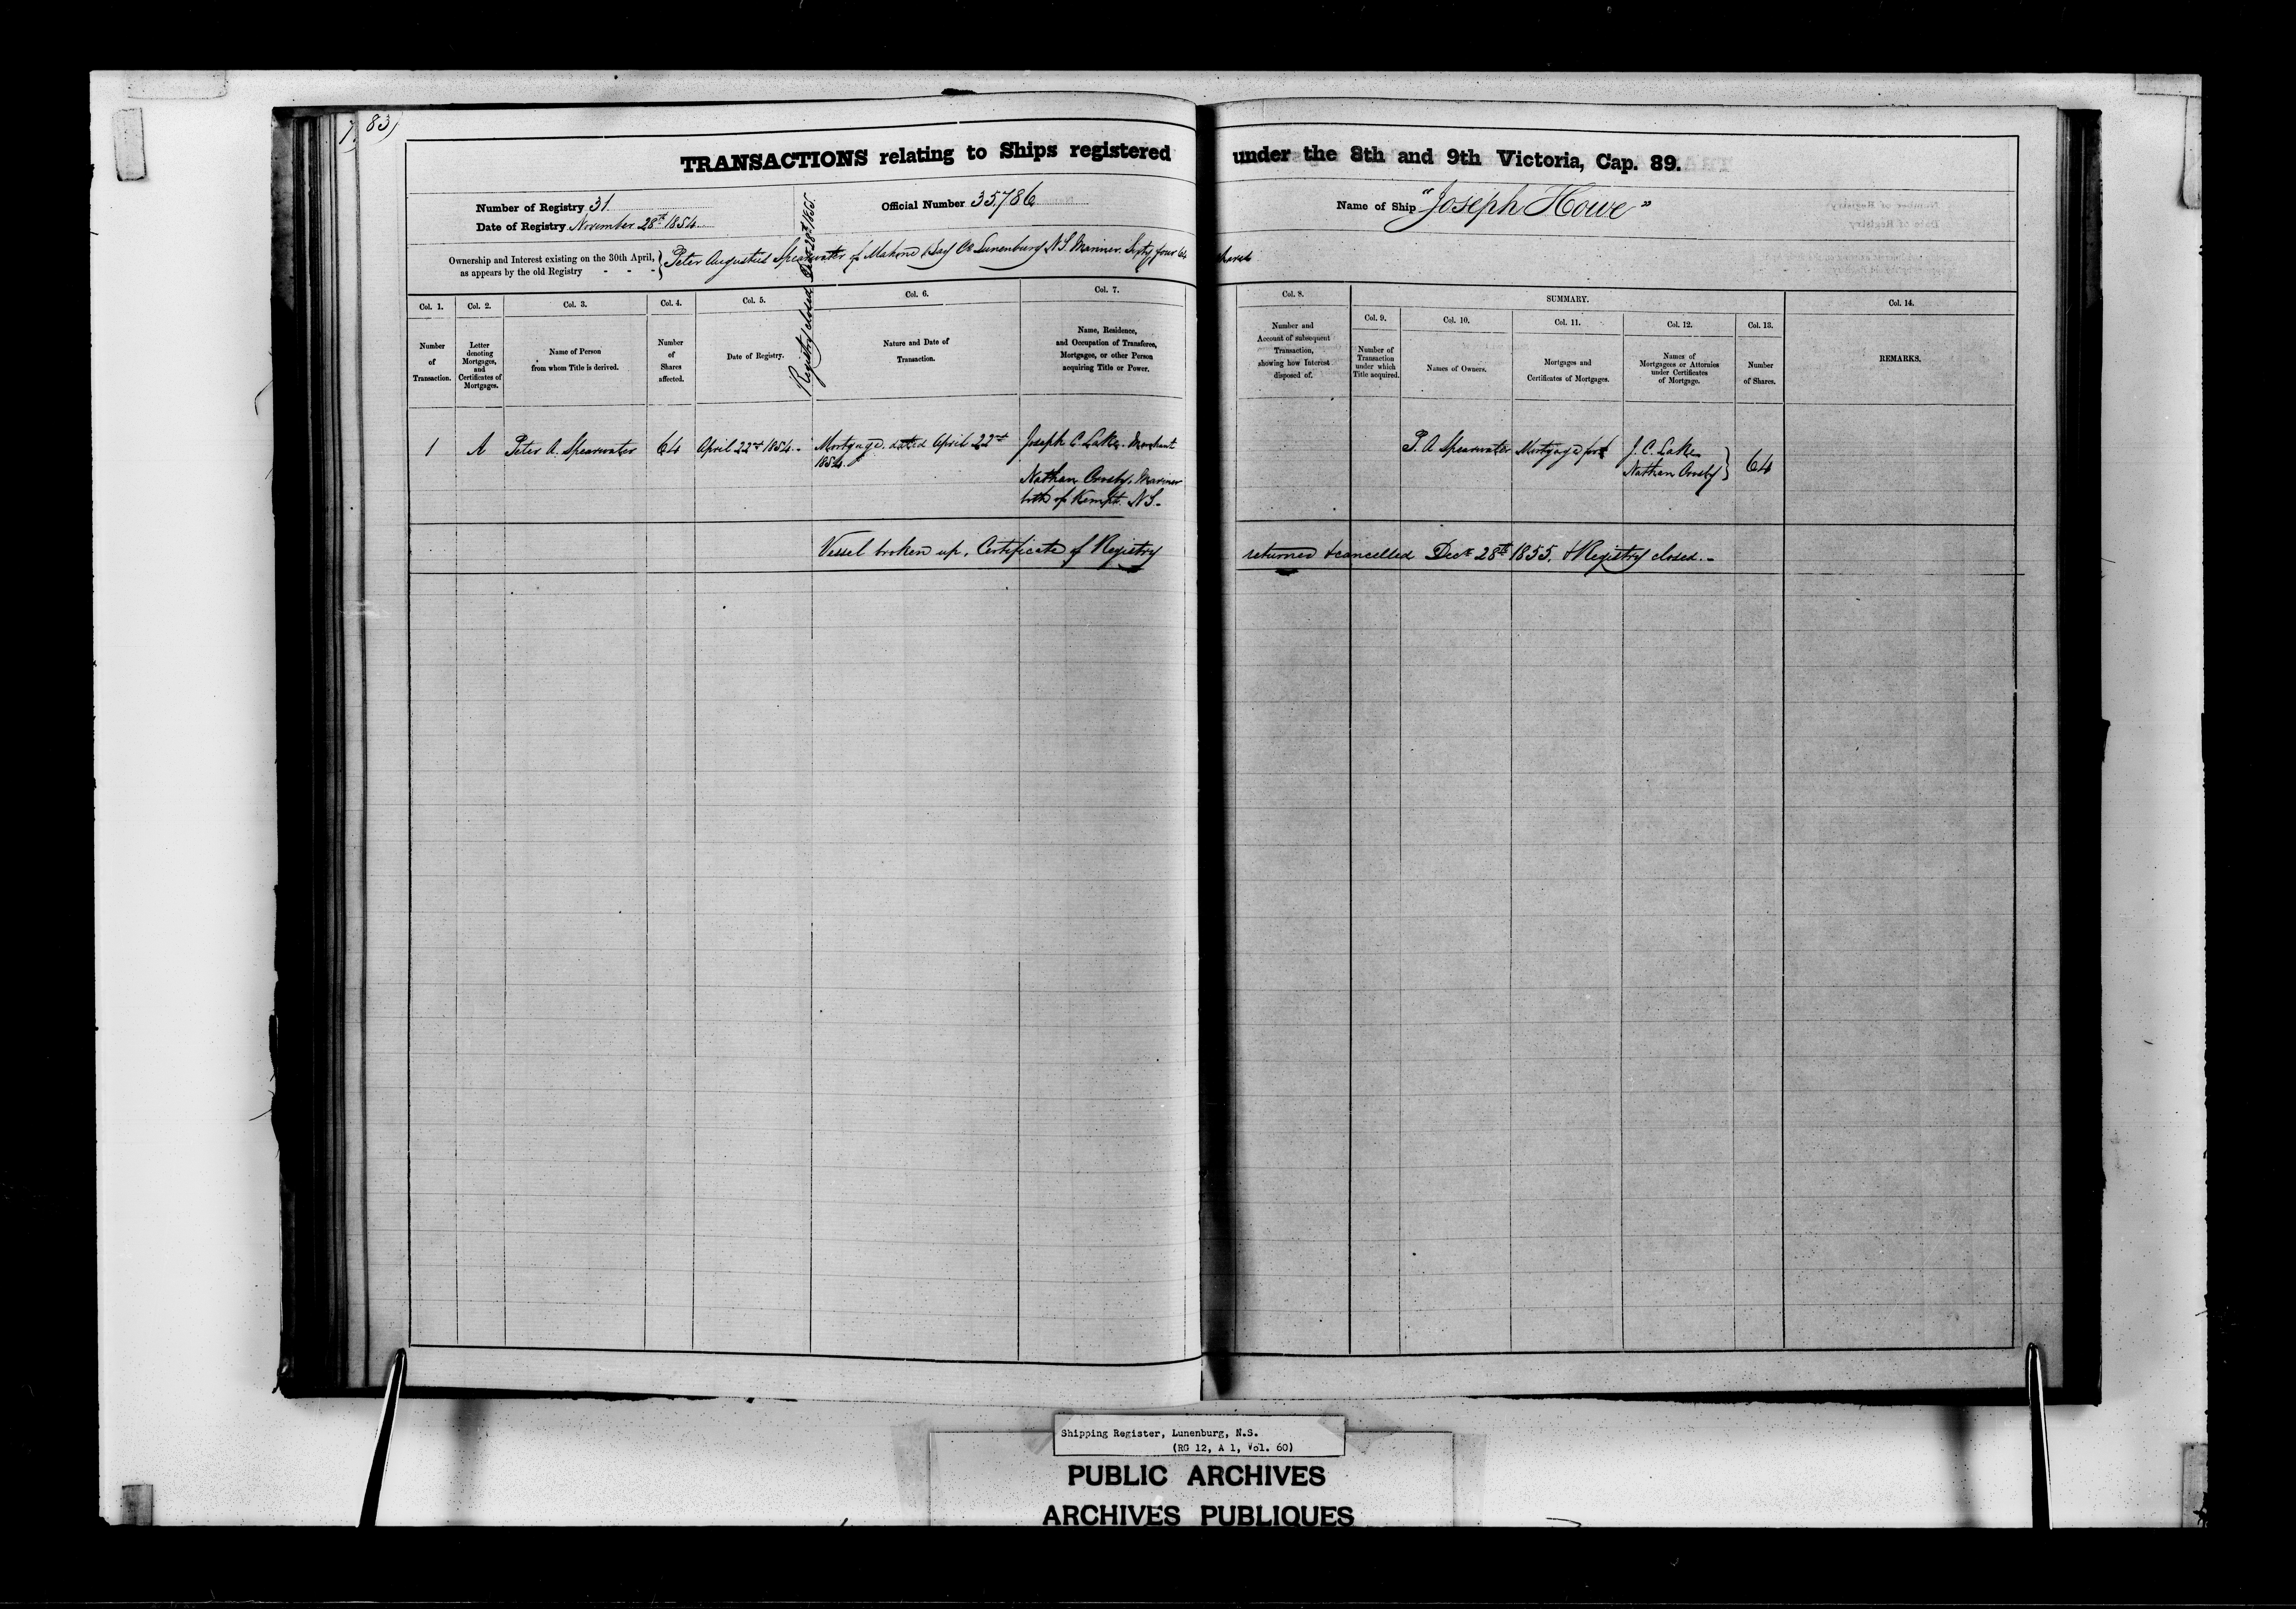 83)
TRANSACTIONS relating to Ships registered under the 8th and 9th Victoria, Cap. 89.
Number of Registry 31
Official Number 35,786
Name of Ship "Joseph Howe"
Date of Registry November 28th 1854
Ownership and Interest existing on the 30th April, as appears by the old Registry - - - } Peter Augustus Spearwater of Mahone Bay Co Lunenburg N.S. Mariner. Sixty four 64 shares
Registry closed Dec 28th 1855.
Col. 1.
Number
of
Transaction.
Col. 2.
Letter
denoting
Mortgages,
and
Certificates of
Mortgages.
Col. 3.
Name of Person
from whom Title is derived.
Col. 4.
Number
of
Shares
affected.
Col. 5.
Date of Registry.
Col. 6.
Nature and Date of
Transaction.
Col. 7.
Name, Residence,
and Occupation of Transferee,
Mortgagee, or other Person
acquiring Title or Power.
Col. 8.
Number and
Account of subsequent
Transaction,
showing how Interest
disposed of.
SUMMARY.
Col. 9.
Number of
Transaction
under which
Title acquired.
Col. 10.
Names of Owners.
Col. 11.
Mortgages and
Certificates of Mortgages.
Col. 12.
Names of
Mortgagees or Attornies
under Certificates
of Mortgage.
Col. 13.
Number
of Shares.
Col. 14.
REMARKS.
1
A
Peter A. Spearwater
64
April 22nd 1854.
Mortgage. dated April 22nd
1854.
Joseph C. Lake. Merchant
Nathan Mariner
both of Kempt. N.S.
P. A Spearwater
Mortgage for
J. C. Lake
Nathan
64
Vessel broken up, Certificate of Registry returned & cancelled Decr 28th 1855. & Registry closed.
Shipping Register, Lunenburg, N.S.
(RG 12, A 1, Vol. 60)
PUBLIC ARCHIVES
ARCHIVES PUBLIQUES